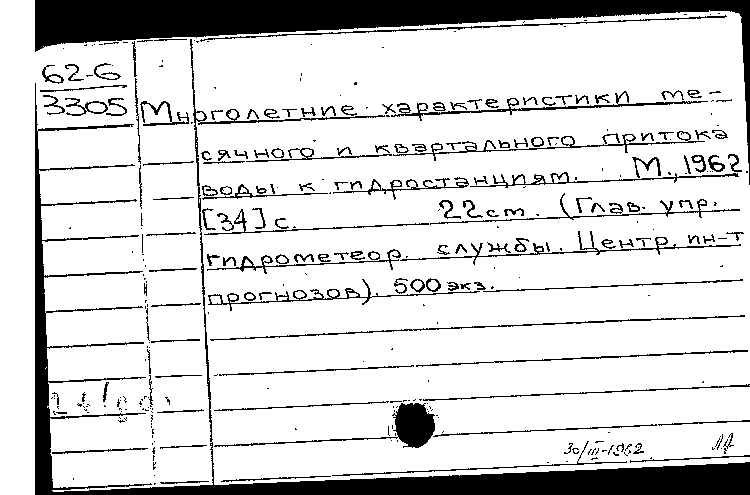 62-6
3305
Многолетние характеристики ме-
сячного и квартального притока
воды к гидростанциям. М., 1962.
[34] с. 22 см. (Глав. упр.
гидрометеор. службы. Центр. ин-т
прогнозов). 500 экз.
30/III-1962